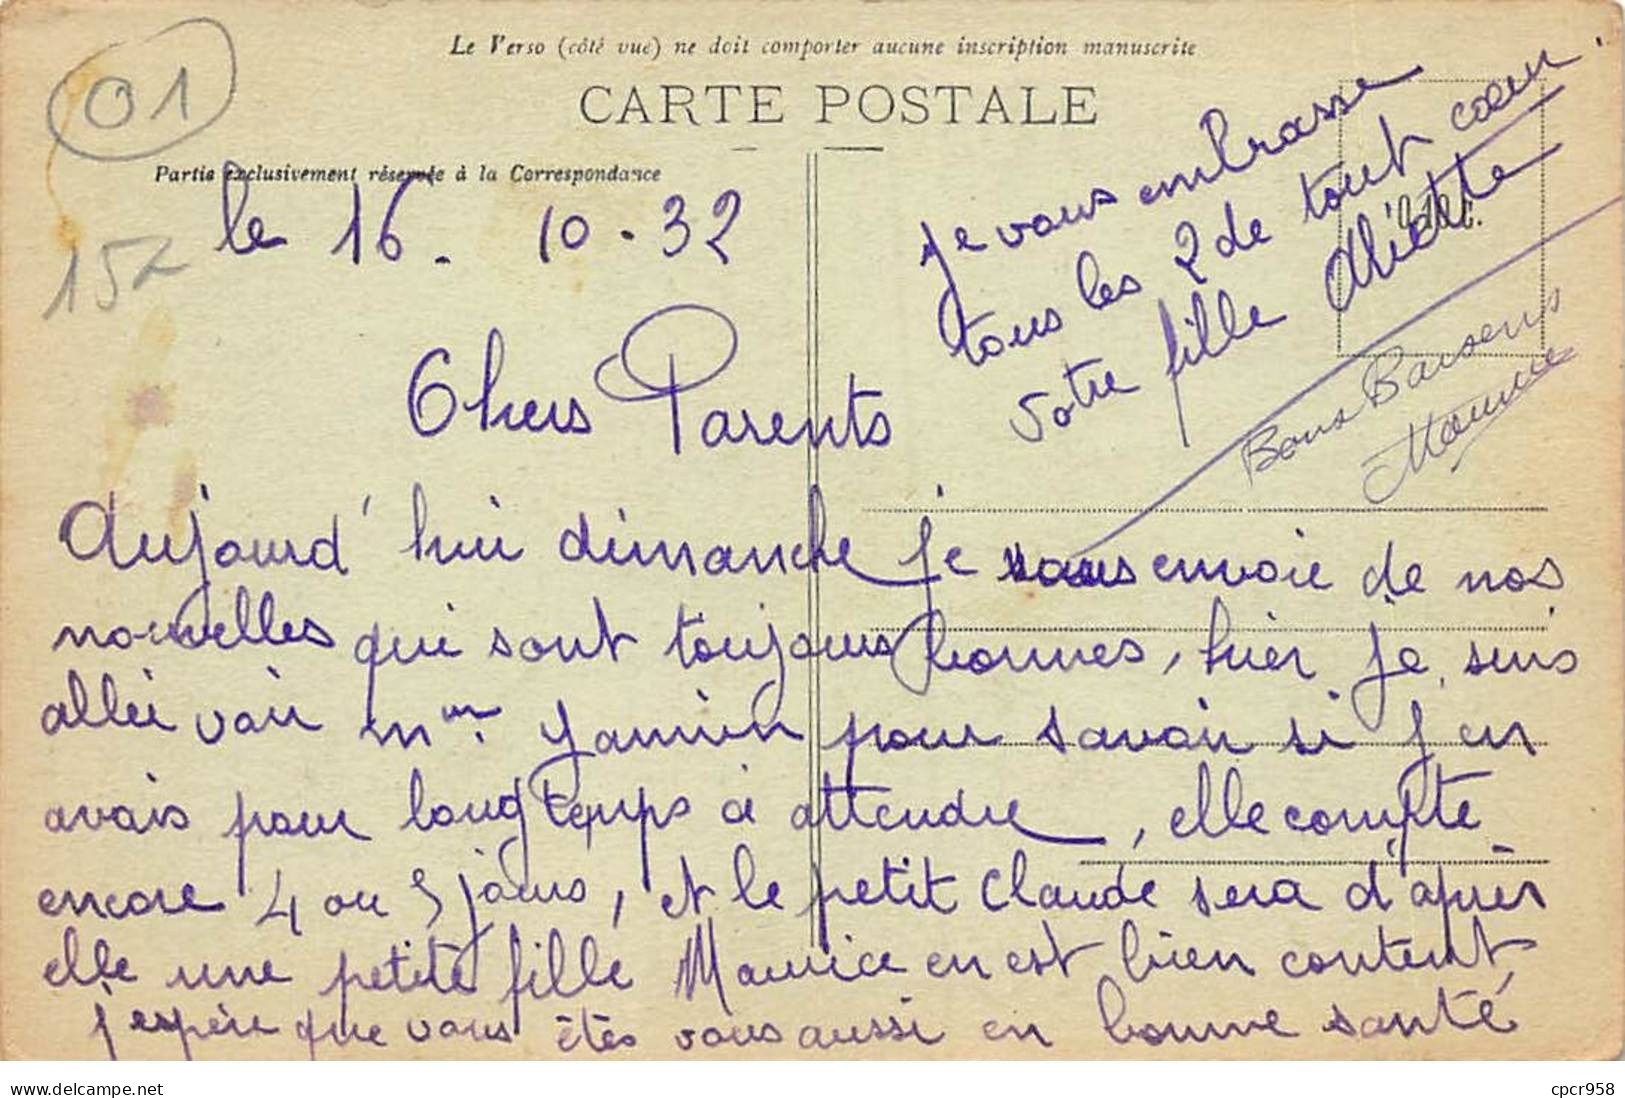 Le Verso (côté vue) ne doit comporter aucune inscription manuscrite
CARTE POSTALE
Partie exclusivement réservée à la Correspondance
01
152
le 16. 10.32
Chers Parents
Aujourd'hui dimanche je vous envoie de nos
nouvelles qui sont toujours bonnes, hier je suis
allée voir mme. Jamien pour savoir si j'en
avais pour longtemps à attendre, elle compte
encore 4 ou 5 jours, et le petit Claude sera d'après
elle une petite fille Maurice en est bien content,
j'espère que vous êtes vous aussi en bonne santé
je vous embrasse
tous les 2 de tout coeur.
votre fille
Bons Baisers
Maurice
delcampe.net
cpcr958